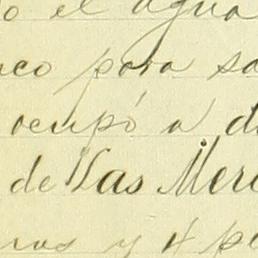 o el agua
co para sa
ocupó a d
de Las Mer
y 4 pe